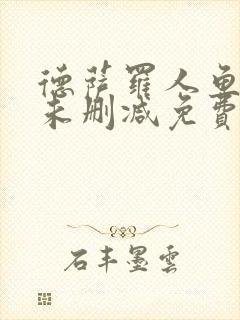 德萨罗人鱼
未删减免费
石丰墨雲